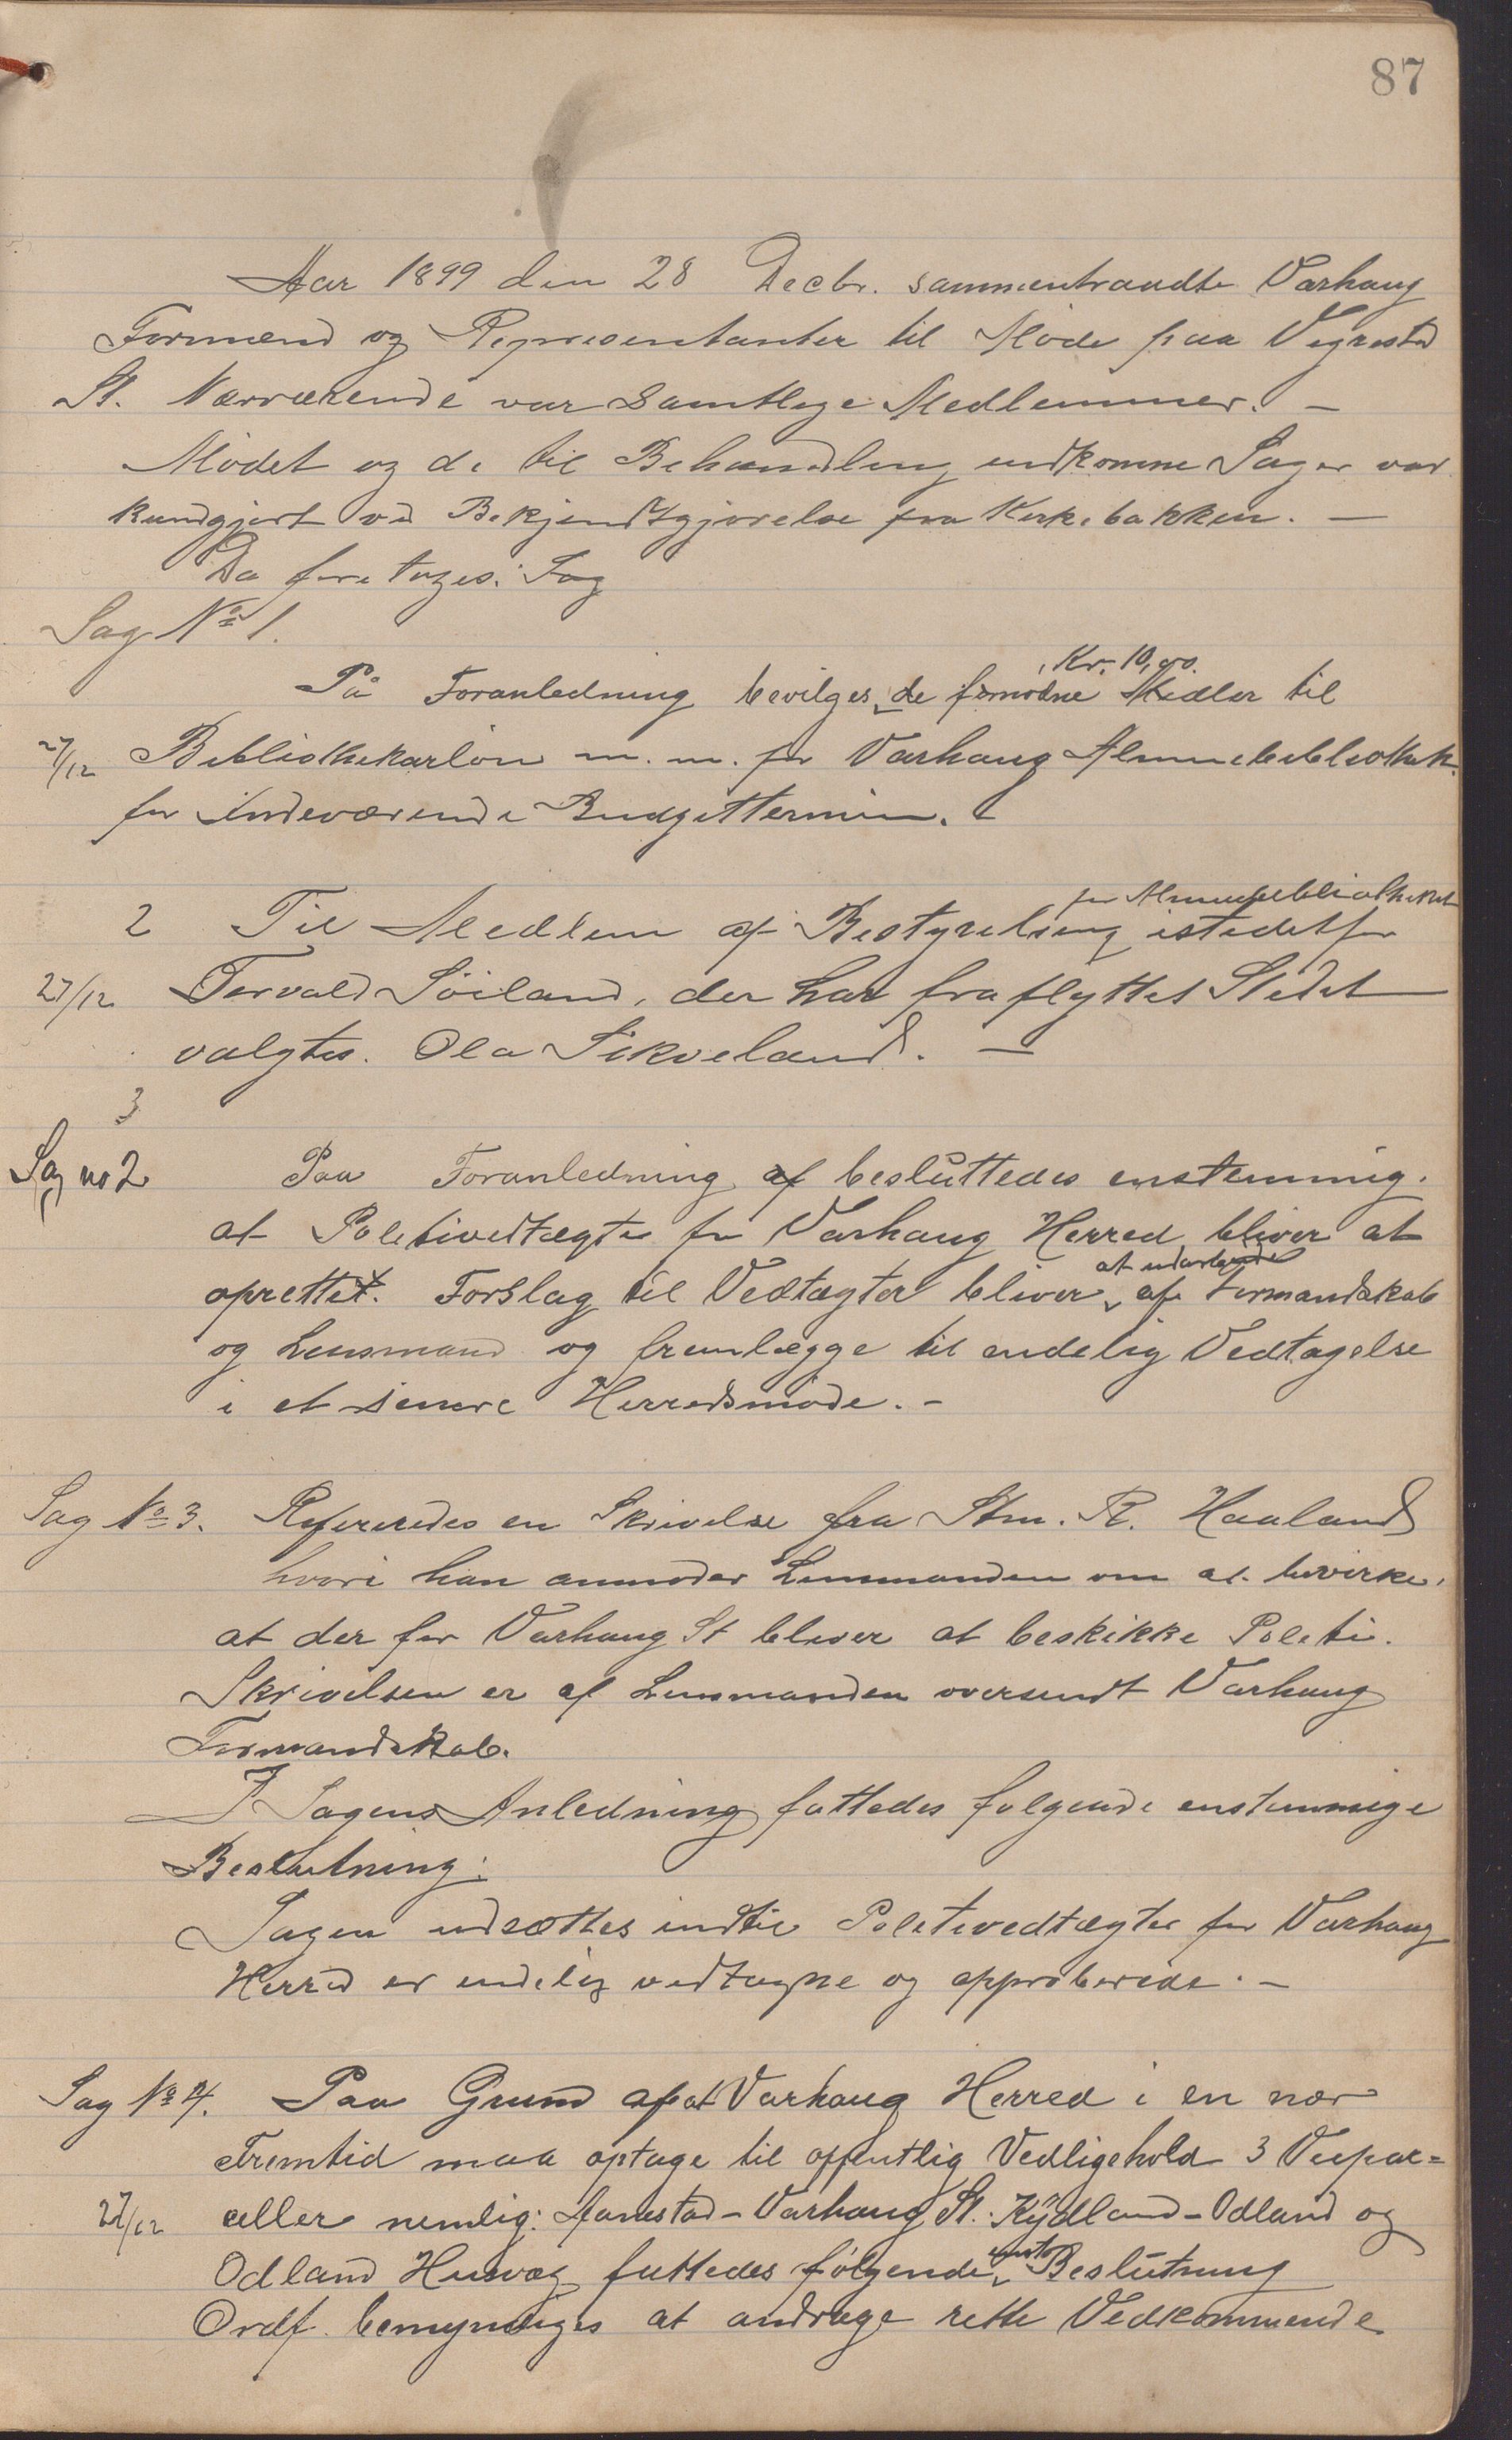 87
Aar 1899 den 28 Decbr. sammentraadte Varhaug
Formænd og Representanter til Møde paa Vigrestad
St. Nærværende var samtlige Medlemmer. —
Mødet og de til Behandling indkomne Sager var
kundgjort ved Bekjendtgjørelse fra Kirkebakken. —
Da foretoges: Sag
Sag No 1.
Kr. 10,00.
På Foranledning bevilges de fornødne Midler til
27/12 Bibliothekarløn m. m. for Varhaug Almuebibliothek
for indeværende Budgettermin.
for Almuebibliotheket
2 Til Medlem af Bestyrelsen istedetfor
27/12 Torvald Søiland, der har fraflyttet Stedet
valgtes. Ola Sikveland. —
3
Sag no 2 Paa Foranledning af besluttedes enstemmig.
at Politivedtægter for Varhaug Herred bliver at
at udarbeide
oprettet. Forslag til Vedtægter bliver af Formandskab
og Lensmand og fremlægge til endelig Vedtagelse
i et senere Herredsmøde. -
Sag No 3. Refereredes en Skrivelse fra Stm. R. Haaland
hvori han anmoder Lensmanden om at bevirke,
at der for Varhaug St bliver at beskikke Politi.
Skrivelsen er af Lensmanden oversendt Varhaug
Formandskab.
I Sagens Anledning fattedes følgende enstemmige
Beslutning:
Sagen udsættes indtil Politivedtægter for Varhaug
Herred er endelig vedtagne og approberede. —
Sag No 4. Paa Grund af at Varhaug Herred i en nær
Fremtid maa optage til offentlig Vedligehold 3 Veipar=
27/12 celler nemlig: Aanestad - Varhaug St. Kydland - Odland og
enst.
Odland Husvæg fattedes følgende Beslutning
Ordf. bemyndiges at andrage rette Vedkommende